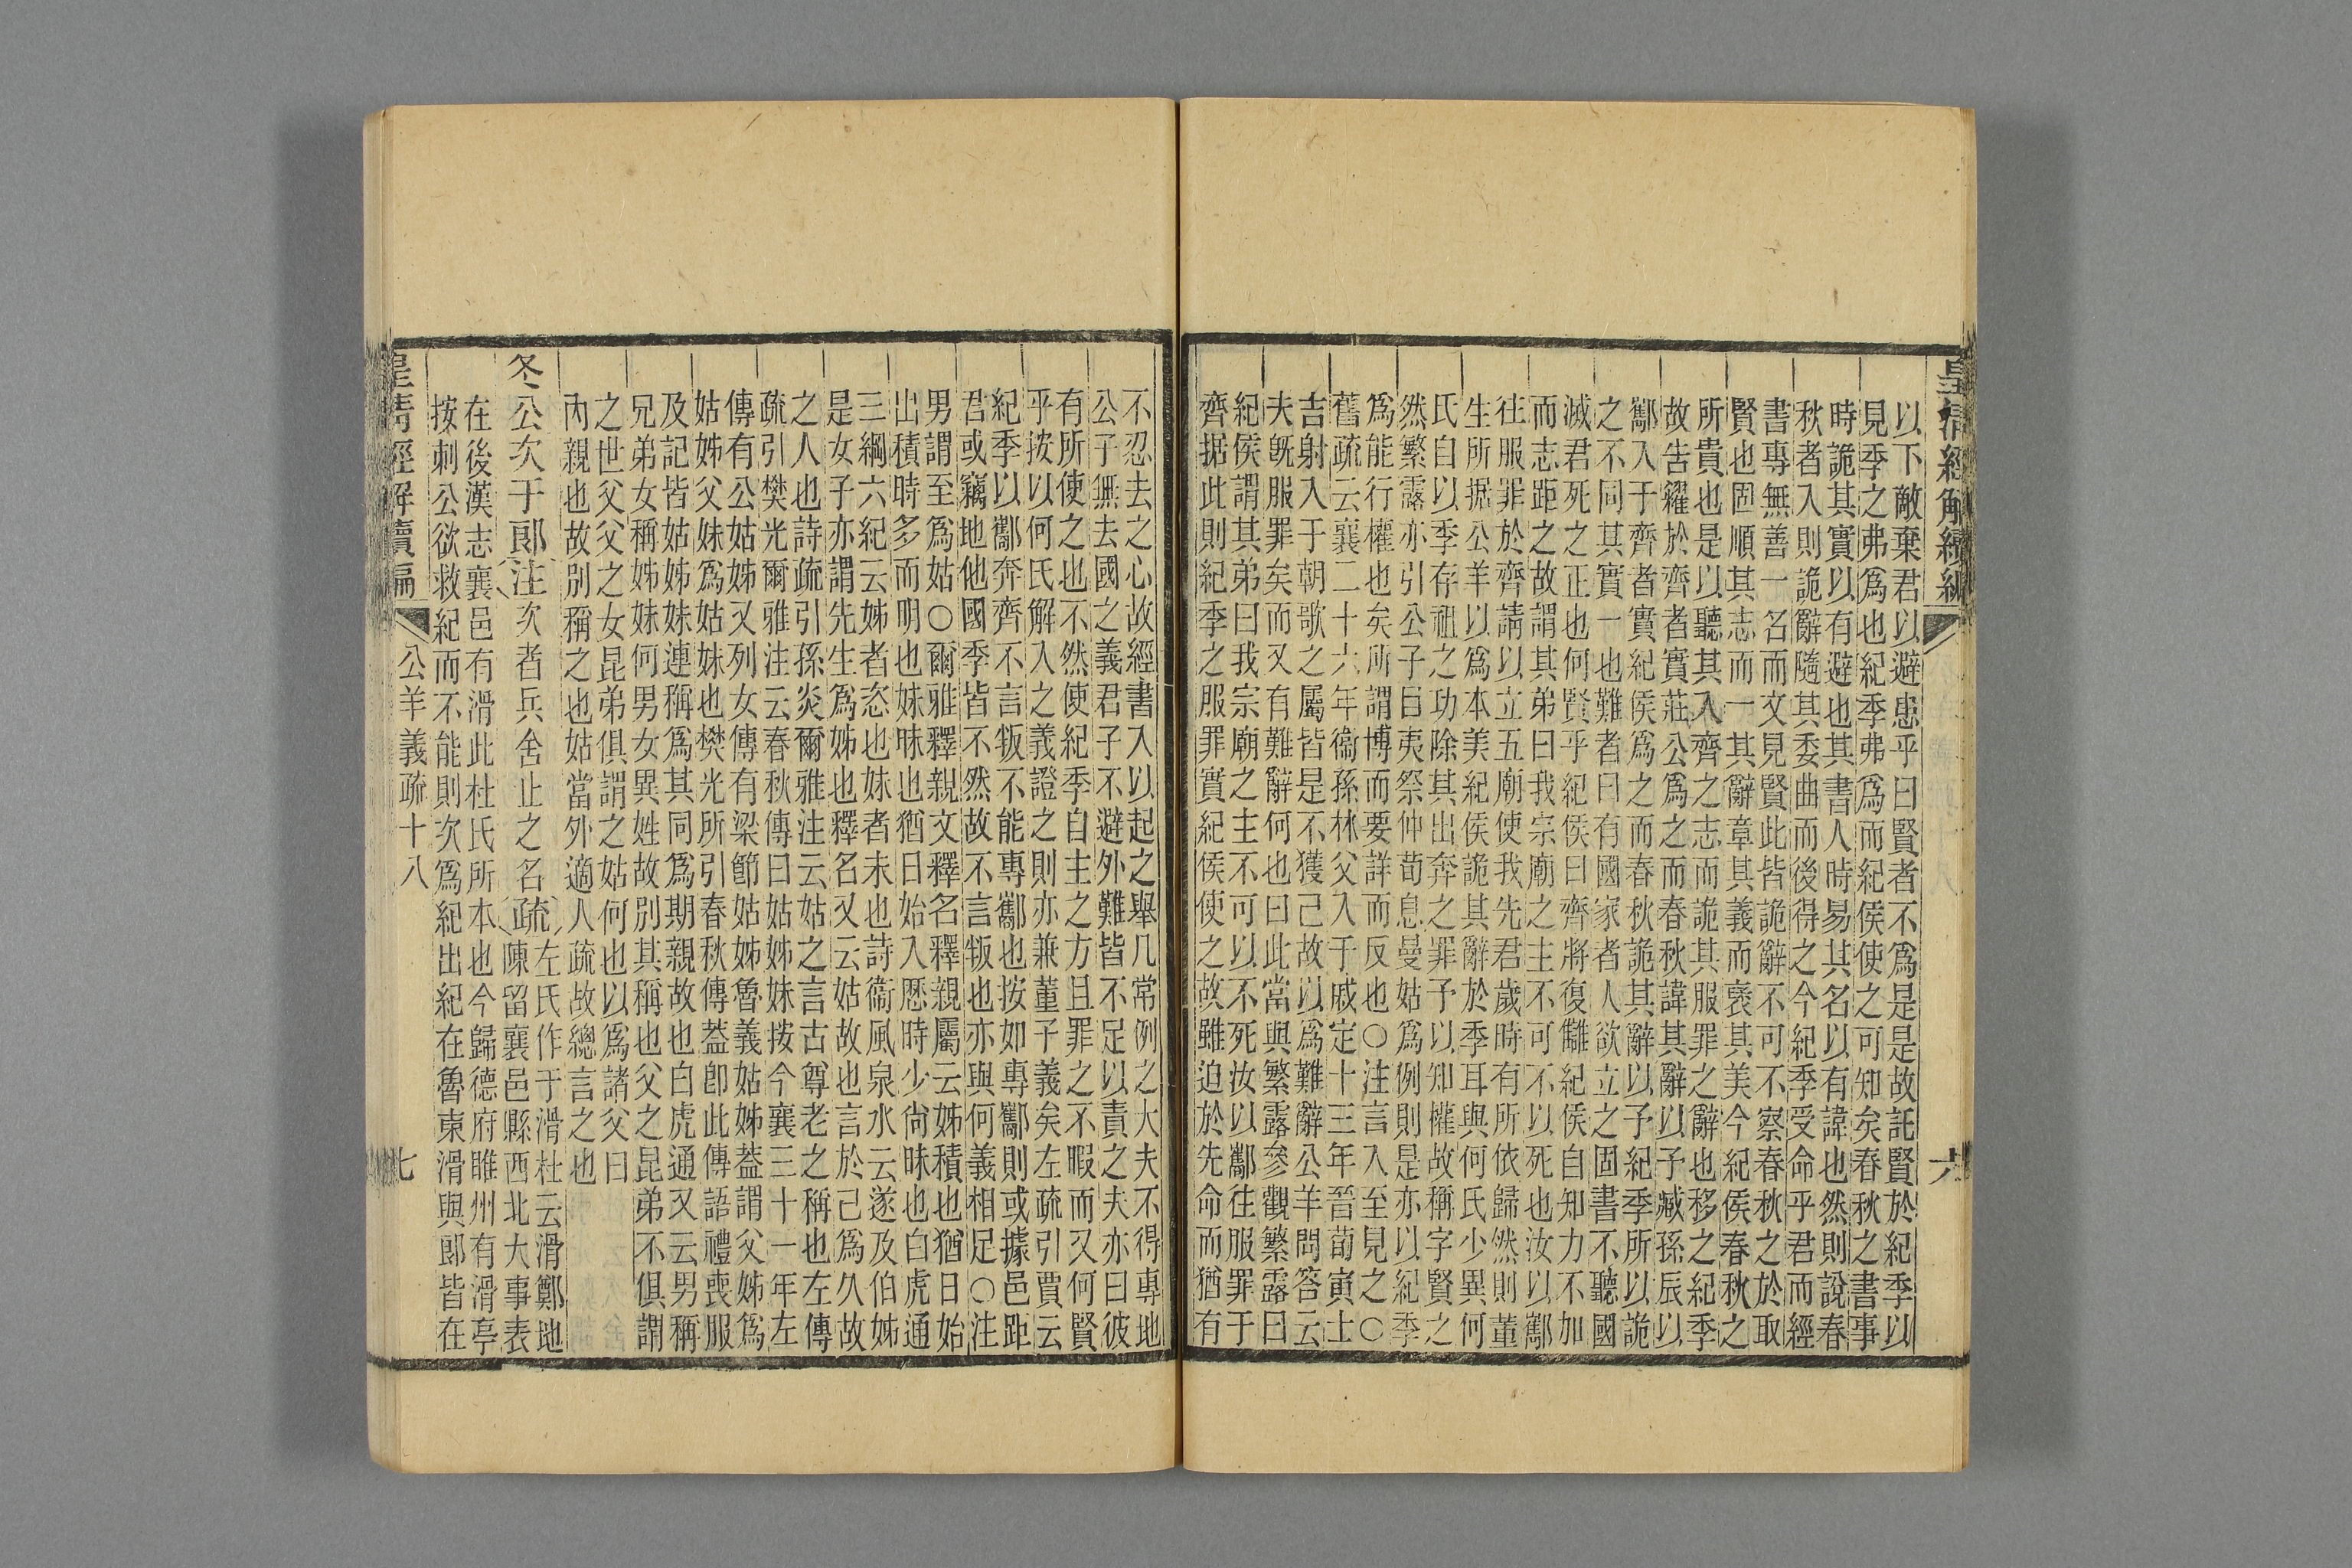 皇清經解續編
六
以下敵棄君以避患乎曰賢者不爲是是故託賢於紀季以
見季之弗爲也紀季弗爲而紀侯使之可知矣春秋之書事
時詭其實以有避也其書人時易其名以有諱也然則說春
秋者入則詭辭隨其委曲而後得之今紀季受命乎君而經
書專無善一名而文見賢此皆詭辭不可不察春秋之於取
賢也固順其志而一其辭章其義而褒其美今紀侯春秋之
所貴也是以聽其入齊之志而詭其服罪之辭也移之紀季
故告糴於齊者實莊公爲之而春秋諱其辭以予臧孫辰以
酅入于齊者實紀侯爲之而春秋詭其辭以予紀季所以詭
之不同其實一也難者曰有國家者人欲立之固書不聽國
滅君死之正也何賢乎紀侯曰齊將復讎紀侯自知力不加
而志距之故謂其弟曰我宗廟之主不可不以死也汝以酅
往服罪於齊請以立五廟使我先君歲時有所依歸然則董
生所据公羊以爲本美紀侯詭其辭於季耳與何氏少異何
氏自以季存祖之功除其出奔之罪予以知權故稱字賢之
然繁露亦引公子目夷祭仲荀息曼姑爲例則是亦以紀季
爲能行權也矣所謂博而要詳而反也○注言入至見之○
舊疏云襄二十六年衞孫林父入于戚定十三年晉荀寅士
吉射入于朝歌之屬皆是不獲己故以爲難辭公羊問答云
夫旣服罪矣而又有難辭何也曰此當與繁露參觀繁露曰
紀侯謂其弟曰我宗廟之主不可以不死汝以酅往服罪于
齊据此則紀季之服罪實紀侯使之故雖迫於先命而猶有
不忍去之心故經書入以起之舉凡常例之大夫不得專地
公子無去國之義君子不避外難皆不足以責之夫亦曰彼
有所使之也不然使紀季自主之方且罪之不暇而又何賢
乎按以何氏解入之義證之則亦兼董子義矣左疏引賈云
紀季以酅奔齊不言叛不能專酅也按如專酅則或據邑距
君或竊地他國季皆不然故不言叛也亦與何義相足○注
男謂至爲姑○爾雅釋親文釋名釋親屬云姊積也猶日始
出積時多而明也妹昧也猶日始入歷時少尙昧也白虎通
三綱六紀云姊者恣也妹者未也詩衞風泉水云遂及伯姊
是女子亦謂先生爲姊也釋名又云姑故也言於己爲久故
之人也詩疏引孫炎爾雅注云姑之言古尊老之稱也左傳
疏引樊光爾雅注云春秋傳曰姑姊妹按今襄三十一年左
傳有公姑姊又列女傳有梁節姑姊魯義姑姊蓋謂父姊爲
姑姊父妹爲姑妹也樊光所引春秋傳蓋卽此傳語禮喪服
及記皆姑姊妹連稱爲其同爲期親故也白虎通又云男稱
兄弟女稱姊妹何男女異姓故別其稱也父之昆弟不俱謂
之世父父之女昆弟俱謂之姑何也以爲諸父曰
內親也故別稱之也姑當外適人疏故總言之也
冬公次于郎〔注〕次者兵舍止之名〔疏〕左氏作于滑杜云滑鄭地
陳留襄邑縣西北大事表
在後漢志襄邑有滑此杜氏所本也今歸德府睢州有滑亭
按刺公欲救紀而不能則次爲紀出紀在魯東滑與郎皆在
皇淸經解續編
公羊義疏十八
七